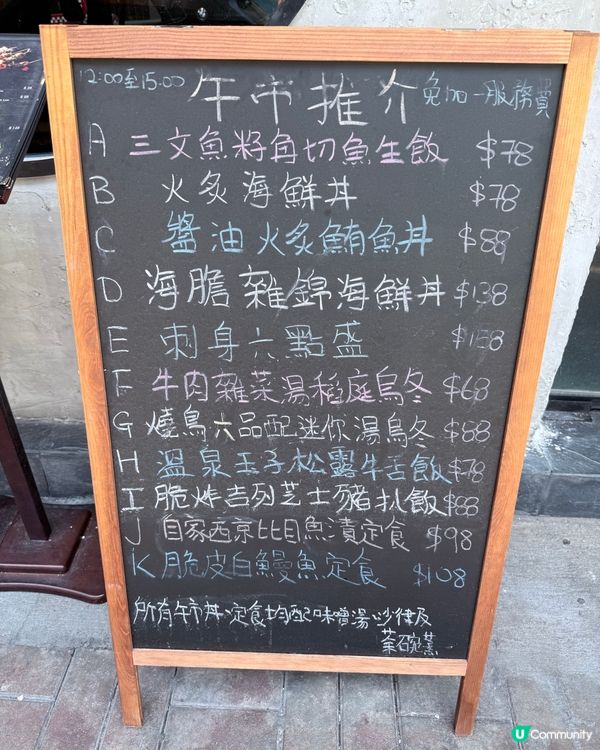 12:00至15:00 午市推介 免加一服務費
A 三文魚籽角切魚生飯 $78
B 火炙海鮮丼 $78
C 醬油火炙鮪魚丼 $88
D 海膽雜錦海鮮丼 $138
E 刺身六點盛 $158
F 牛肉雜菜湯稻庭烏冬 $68
G 燒鳥六品配迷你湯烏冬 $88
H 溫泉玉子松露牛舌飯 $78
I 脆炸吉列芝士豬扒飯 $88
J 自家西京比目魚漬定食 $98
K 脆皮白鰻魚定食 $108
所有午市丼,定食均配味噌湯,沙律及
茶碗蒸
U Community